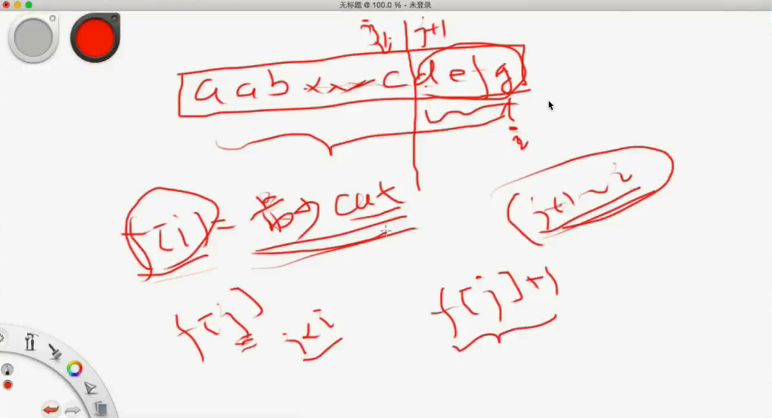 无标题 @ 100.0 % - 未登录
j+1
a a b c d e f g
i
f[i] = 最少 cut
j+1 ~ i
f[j]
j<i
f[j]+1